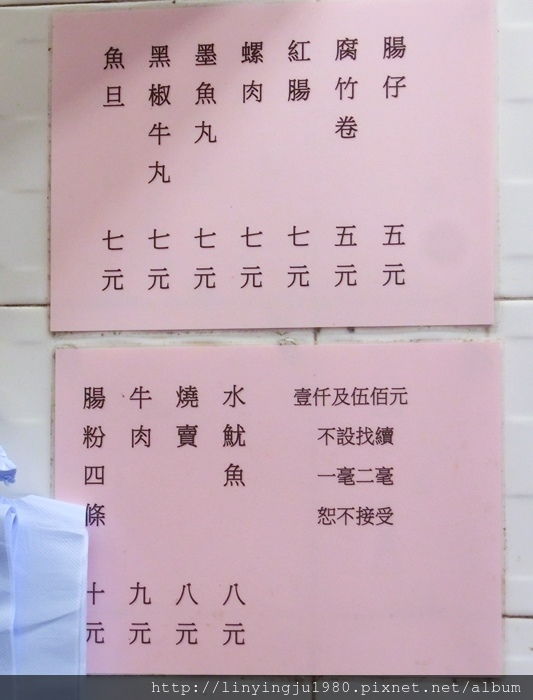 腸仔 五元
腐竹卷 五元
紅腸 七元
螺肉 七元
墨魚丸 七元
黑椒牛丸 七元
魚旦 七元
壹仟及伍佰元
不設找續
一毫二毫
恕不接受
水魷魚 八元
燒賣 八元
牛肉 九元
腸粉四條 十元
http://linyingju1980.pixnet.net/album